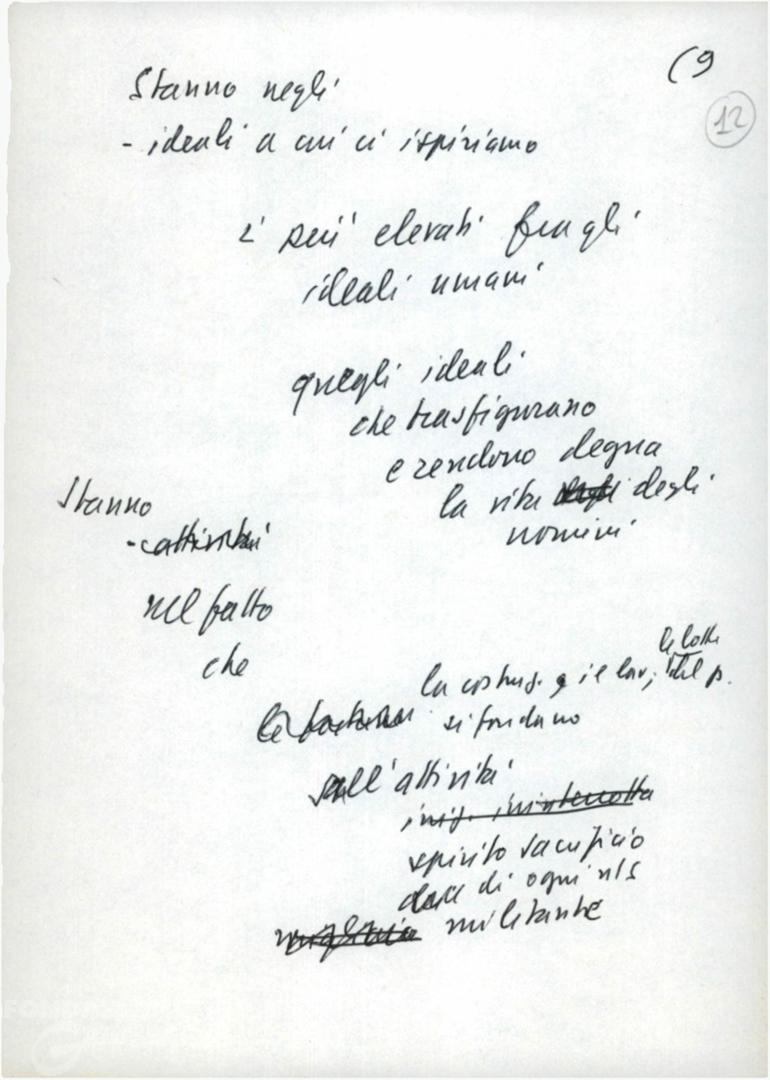 (9
12
Stanno negli
- ideali a cui ci ispiriamo
i più elevati fra gli
ideali umani
quegli ideali
che trasfigurano
e rendono degna
la vita degli
uomini
Stanno
- attività
nel fatto
che
le lotte
la costruz. e il lav., del p.
si fondano
sull'attività
ininterrotta
spirito sacificio
di ogni ns
militante
FONDAZ